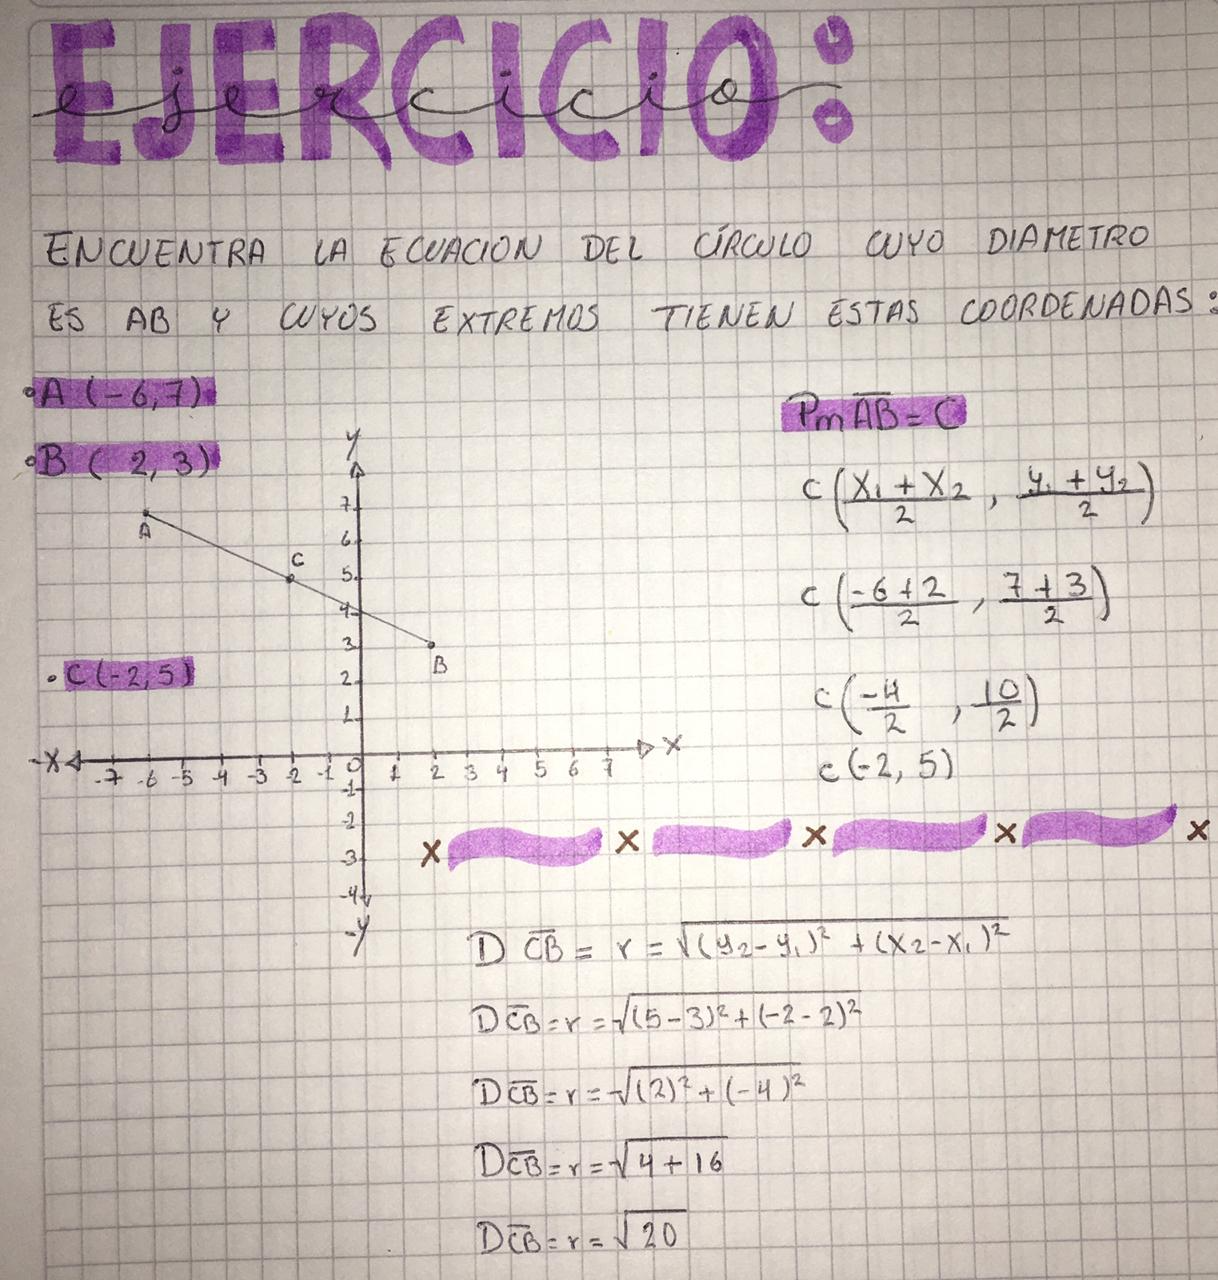 EJERCICIO:
ejercicio
ENCUENTRA LA ECUACION DEL CÍRCULO CUYO DIAMETRO
ES AB Y CUYOS EXTREMOS TIENEN ESTAS COORDENADAS:
•A (-6,7)
•B ( 2, 3)
•C(-2,5)
Y
7
A
6
C
5
4
3
B
2
1
-X -7 -6 -5 -4 -3 -2 -1 0 1 2 3 4 5 6 7 X
-1
-2
-3
-4
-Y
Pm A̅B̅ = C
C (X₁ + X₂ / 2 , y₁ + y₂ / 2)
C (-6+2 / 2 , 7+3 / 2)
C (-4 / 2 , 10 / 2)
C (-2, 5)
x x x x x
D C̅B̅ = r = √(y₂-y₁)² + (x₂-x₁)²
D C̅B̅ = r = √(5-3)² + (-2-2)²
D C̅B̅ = r = √(2)² + (-4)²
D C̅B̅ = r = √4+16
D C̅B̅ = r = √20